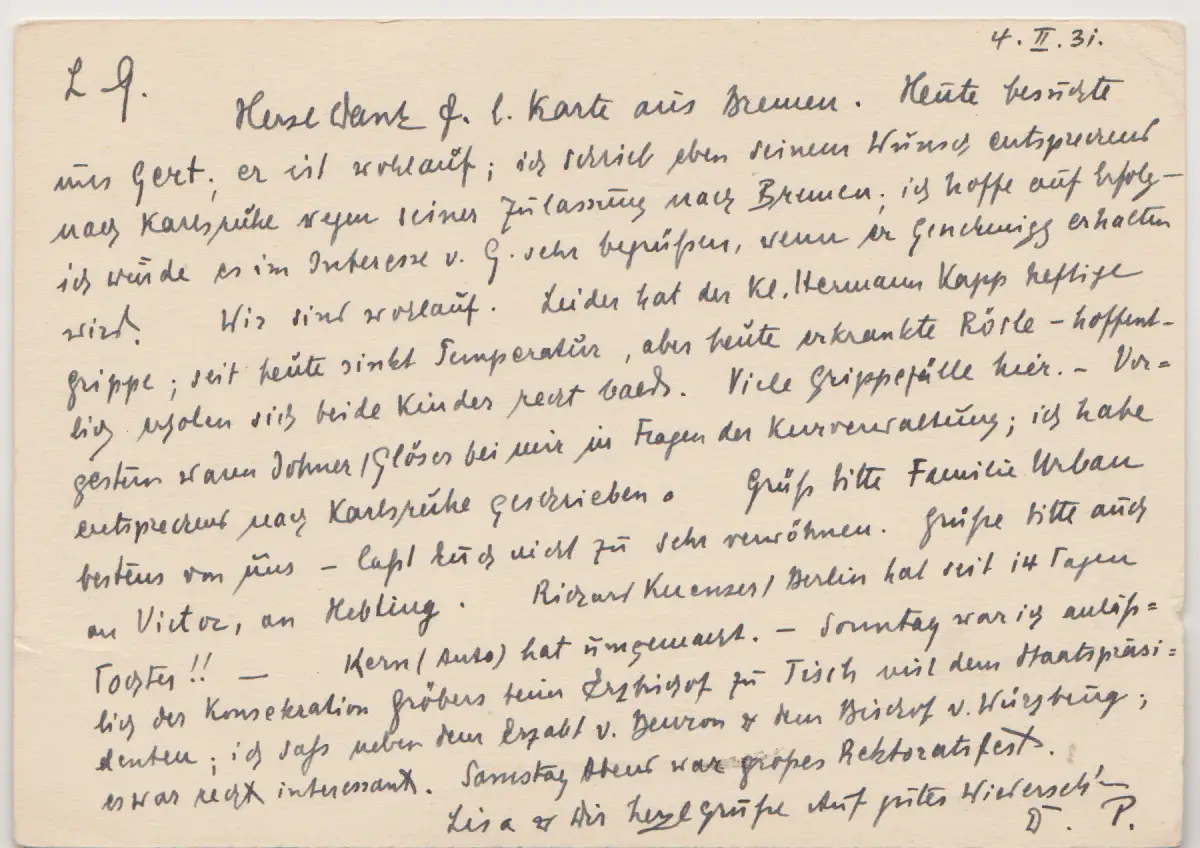 4. II. 31.
L G.
Herzl Dank f. l. Karte aus Bremen. Heute besuchte
uns Gert; er ist wohlauf; ich schrieb eben seinem Wunsch entsprechend
nach Karlsruhe wegen seiner Zulassung nach Bremen; ich hoffe auf Erfolg –
ich würde es im Interesse v. G. sehr begrüßen, wenn er Genehmigg erhalten
wird. Wir sind wohlauf. Leider hat der Kl. Hermann Kapp heftige
Grippe; seit heute sinkt Temperatur, aber heute erkrankte Rösle – hoffent-
lich erholen sich beide Kinder recht bald. Viele Grippefälle hier. – Vor=
gestern waren Dohner/Glöser bei mir in Fragen der Kurverwaltung; ich habe
entsprechend nach Karlsruhe geschrieben. Grüß bitte Familie Urban
bestens von uns – laßt Euch nicht zu sehr verwöhnen. Grüße bitte auch
an Victor, an Hebling. Richard Kuenzer/Berlin hat seit 14 Tagen
Tochter!! — Kern (Auto) hat umgemacht. – Sonntag war ich anläß=
lich der Konsekration Gröbers beim Erzbischof zu Tisch mit dem Staatspräsi=
denten; ich saß neben dem Erzabt v. Beuron & dem Bischof v. Würzburg;
es war recht interessant. Samstag Abend war großes Rektoratsfest.
Lisa & Dir herzl Grüße Auf gutes Wiederseh'n
D. P.